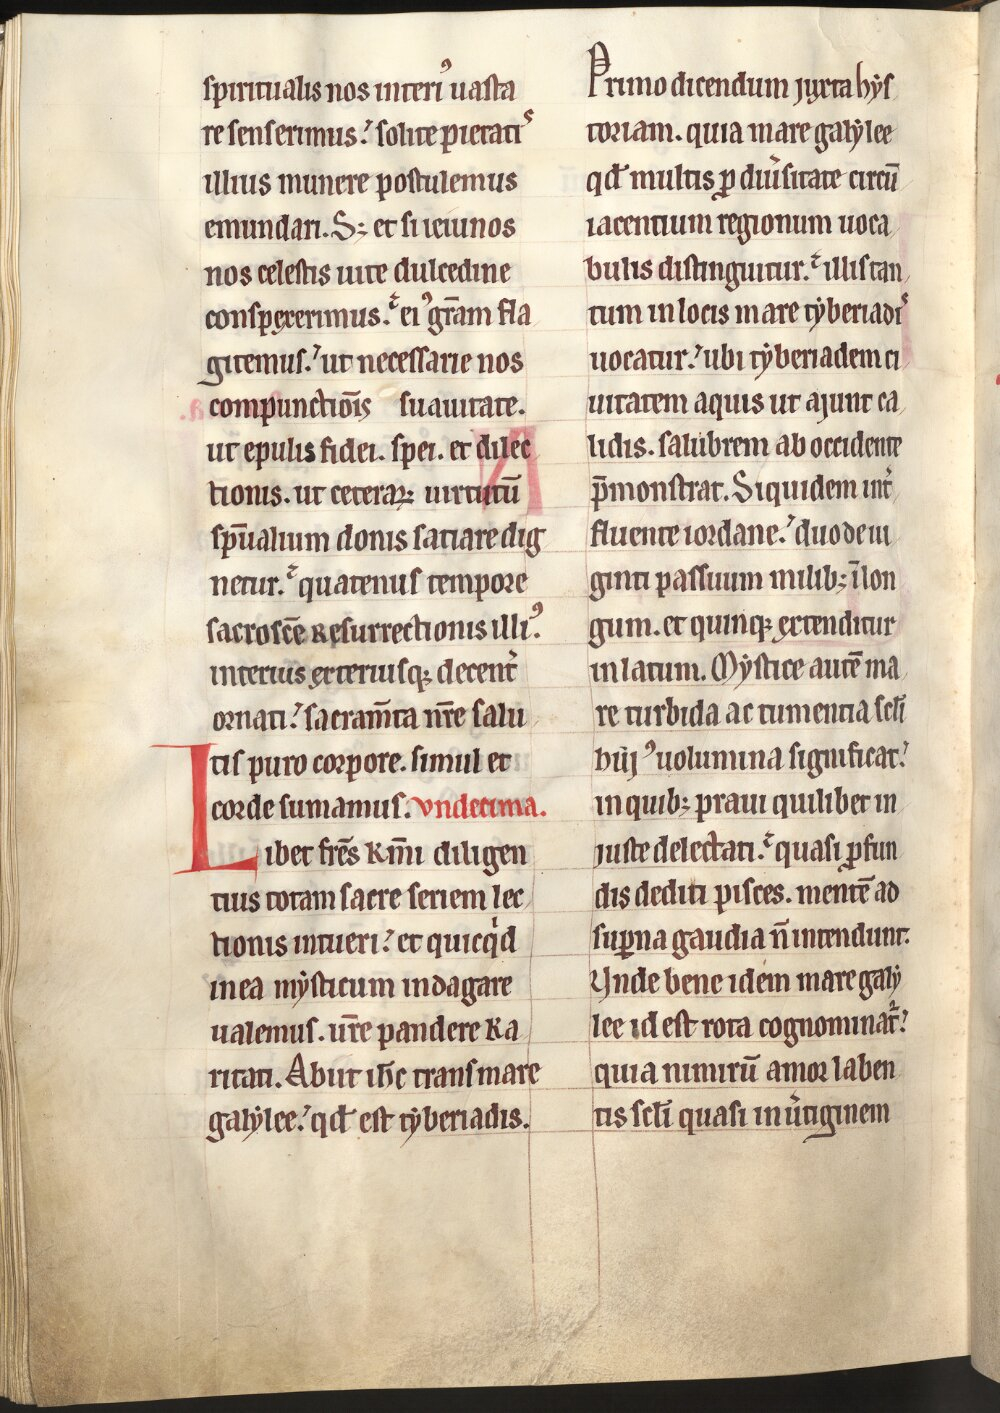 spiritualis nos interiꝰ uasta
re senserimus? solite pietatis
illius munere postulemus
emundari. Sꝫ et si ieiunos
nos celestis uite dulcedine
conspexerimus. eiꝰ gr̄am fla
gitemus? ut necessarie nos
compunctiōis suauitate.
ut epulis fidei. spei. et dilec
tionis. ut ceteraꝝ uirtutū
sp̄ualium donis satiare dig
netur. quatenus tempore
sacrosc̄e resurrectionis illiꝰ.
interius exteriusqꝫ decent̓
ornati? sacram̄ta nr̄e salu
tis puro corpore. simul et
corde sumamus. vndecima.
Libet fr̄es km̄i diligen
tius totam sacre seriem lec
tionis intueri? et quicqͥd
in ea mysticum indagare
ualemus. ur̄e pandere ka
ritati. Abiit ihc̄ trans mare
galylee? qđ est tyberiadis.
Primo dicendum juxta hys
toriam. quia mare galylee
qđ multis ꝑ diu̓sitate circū
iacentium regionum uoca
bulis distinguitur. illis tan
tum in locis mare tyberiadis
uocatur? ubi tyberiadem ci
uitatem aquis ut ajunt ca
lidis. salubrem ab occidente
p̄monstrat. Siquidem int̓
fluente iordane? duode ui
ginti passuum milibꝫ ī lon
gum. et quinqꝫ extenditur
in latum. Mystice autē ma
re turbida ac tumentia scł̄i
huijꝰ uolumina significat?
in quibꝫ praui quilibet in
juste delectati. quasi ꝓfun
dis dediti pisces. mentē ad
suꝑna gaudia n̄ intendunt.
Vnde bene idem mare galy
lee id est rota cognominat᷑?
quia nimirū amor laben
tis scł̄i quasi in u̓tiginem